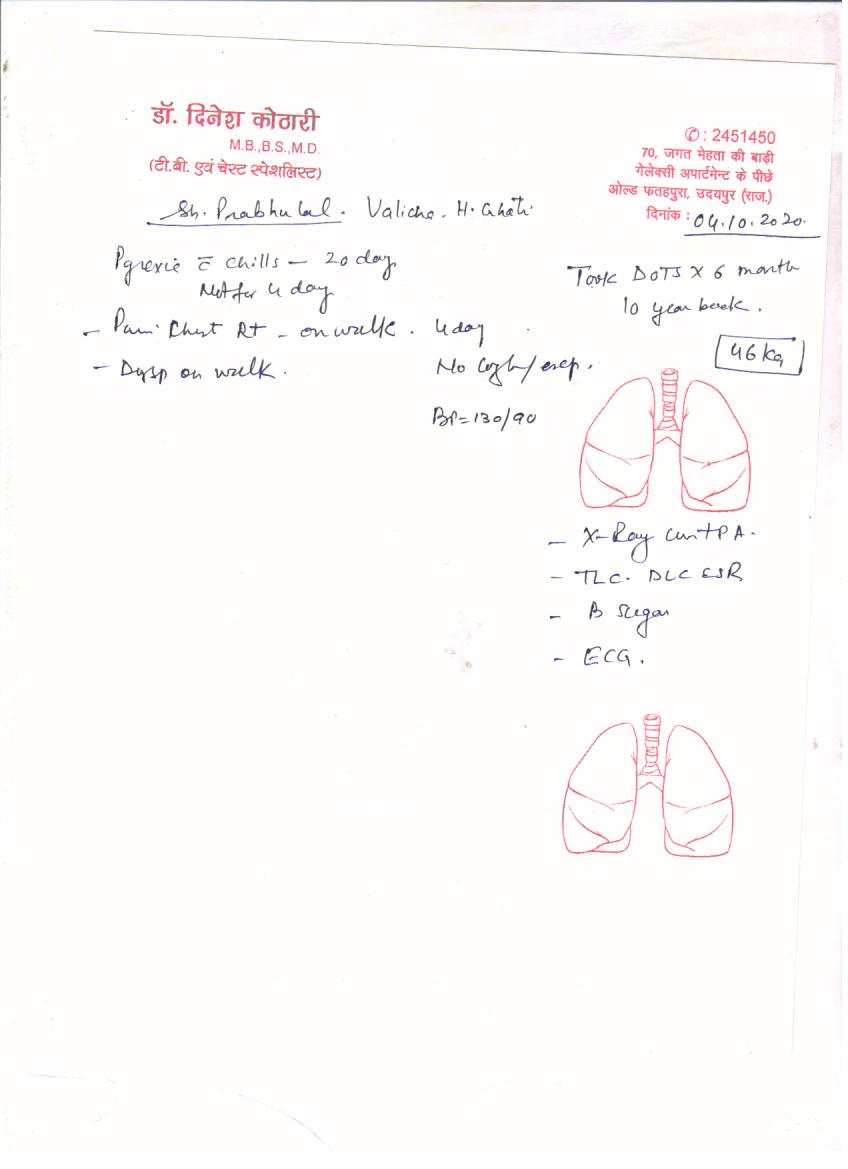 डॉ. दिनेश कोठारी
M.B.,B.S.,M.D.
(टी.बी. एवं चेस्ट स्पेशलिस्ट)
✆: 2451450
70, जगत मेहता की बाड़ी
गेलेक्सी अपार्टमेन्ट के पीछे
ओल्ड फतहपुरा, उदयपुर (राज.)
दिनांक : 04.10.2020.
Sh. Prabhulal. Valicha. H. Ghati
Pyrexia c̄ chills – 20 day
Not for 4 day
- Pain Chest Rt - on walk. 4 day
- Dysp on walk.
No Cough/exp.
BP=130/90
Took DOTS X 6 month
10 year back.
46 kg
- X-Ray Chest PA.
- TLC. DLC ESR
- B Sugar
- ECG.